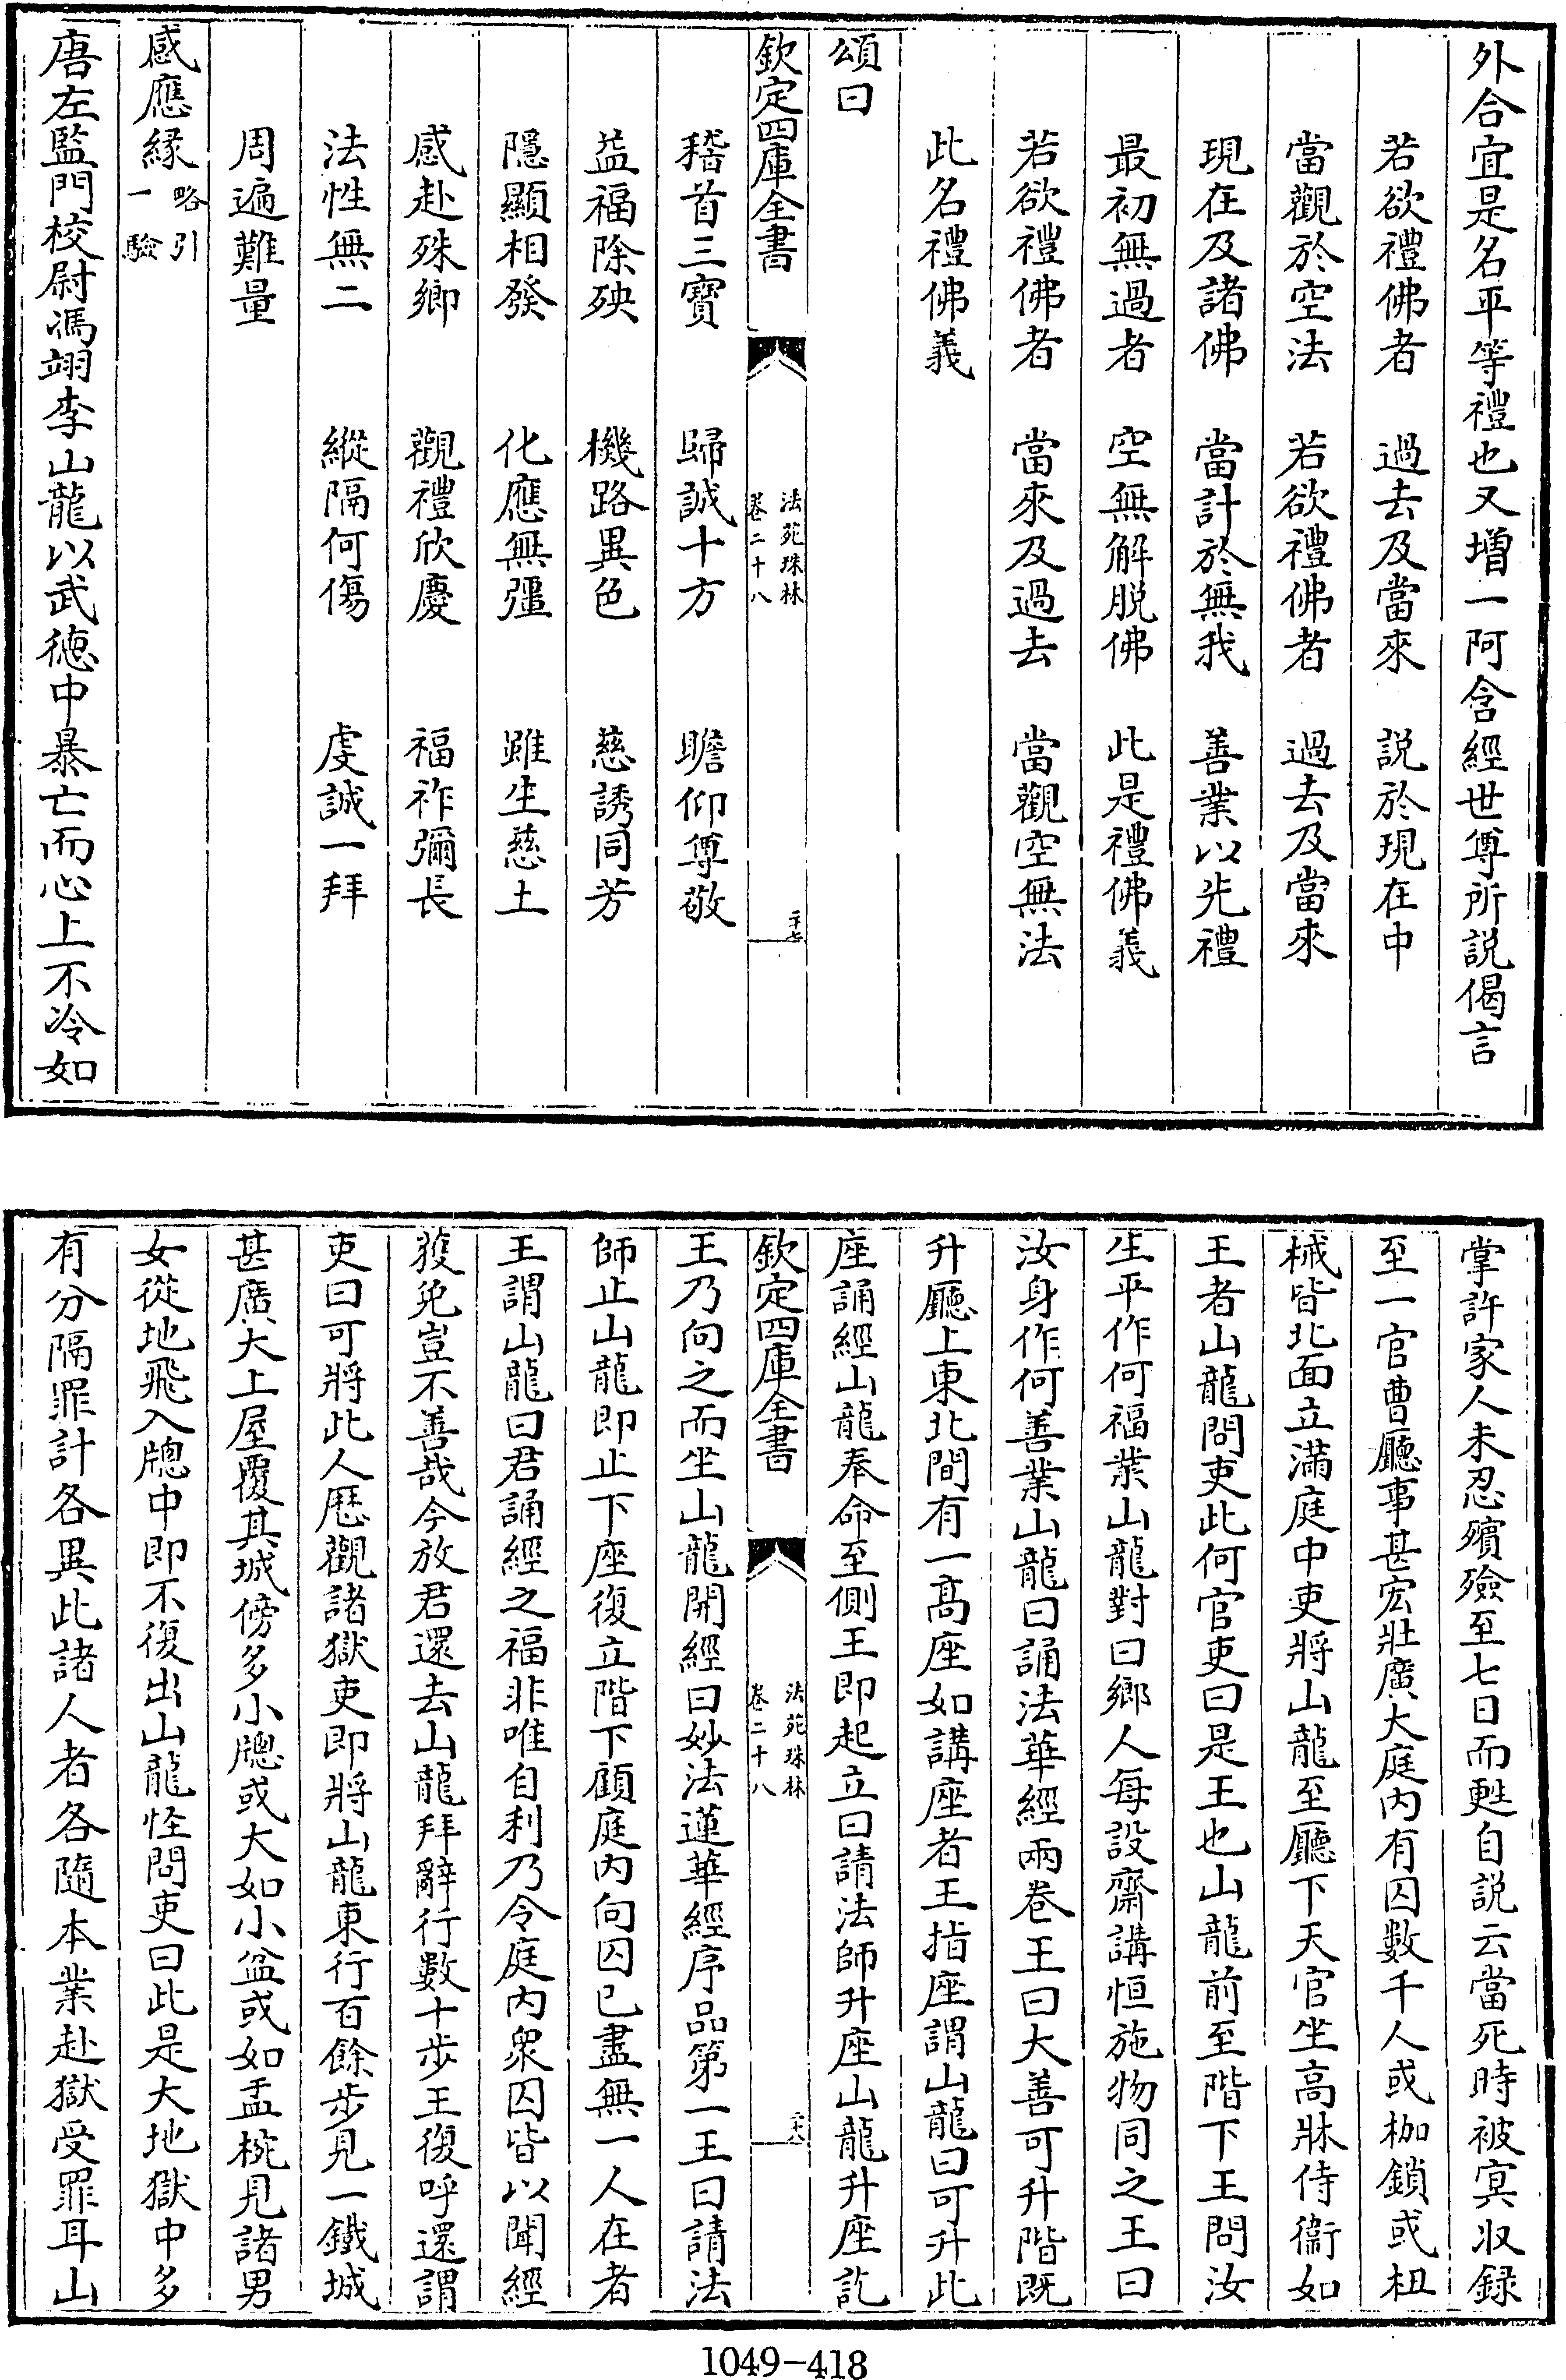 外合宜是名平等禮也又增一阿含經世尊所説偈言
若欲禮佛者　過去及當來　説於現在中
當觀於空法　若欲禮佛者　過去及當來
現在及諸佛　當計於無我　善業以先禮
最初無過者　空無解脱佛　此是禮佛義
若欲禮佛者　當來及過去　當觀空無法
此名禮佛義
頌曰
欽定四庫全書　法苑珠林卷二十八　二十七
稽首三寳　歸誠十方　瞻仰尊敬
益福除殃　機路異色　慈誘同芳
隱顯相發　化應無彊　雖生慈土
感赴殊鄉　觀禮欣慶　福祚彌長
法性無二　縱隔何傷　虔誠一拜
周遍難量
感應縁略引一驗
唐左監門校尉馮翊李山龍以武德中暴亡而心上不冷如
掌許家人未忍殯殮至七日而甦自説云當死時被冥收録
至一官曹廳事甚宏壯廣大庭内有囚數千人或枷鎖或杻
械皆北面立滿庭中吏將山龍至廳下天官坐高牀侍衞如
王者山龍問吏此何官吏曰是王也山龍前至階下王問汝
生平作何福業山龍對曰鄉人每設齋講恒施物同之王曰
汝身作何善業山龍曰誦法華經兩巻王曰大善可升階既
升廳上東北間有一髙座如講座者王指座謂山龍曰可升此
座誦經山龍奉命至側王即起立曰請法師升座山龍升座訖
欽定四庫全書　法苑珠林卷二十八　二十八
王乃向之而坐山龍開經曰妙法蓮華經序品第一王曰請法
師止山龍即止下座復立階下顧庭内向囚已盡無一人在者
王謂山龍曰君誦經之福非唯自利乃令庭内衆囚皆以聞經
獲免豈不善哉今放君還去山龍拜辭行數十步王復呼還謂
吏曰可將此人歴觀諸獄吏即將山龍東行百餘步見一鐵城
甚廣大上屋覆其城傍多小牕或大如小盆或如盂椀見諸男
女從地飛入牕中即不復出山龍怪問吏曰此是大地獄中多
有分隔罪計各異此諸人者各隨本業赴獄受罪耳山
1049-418